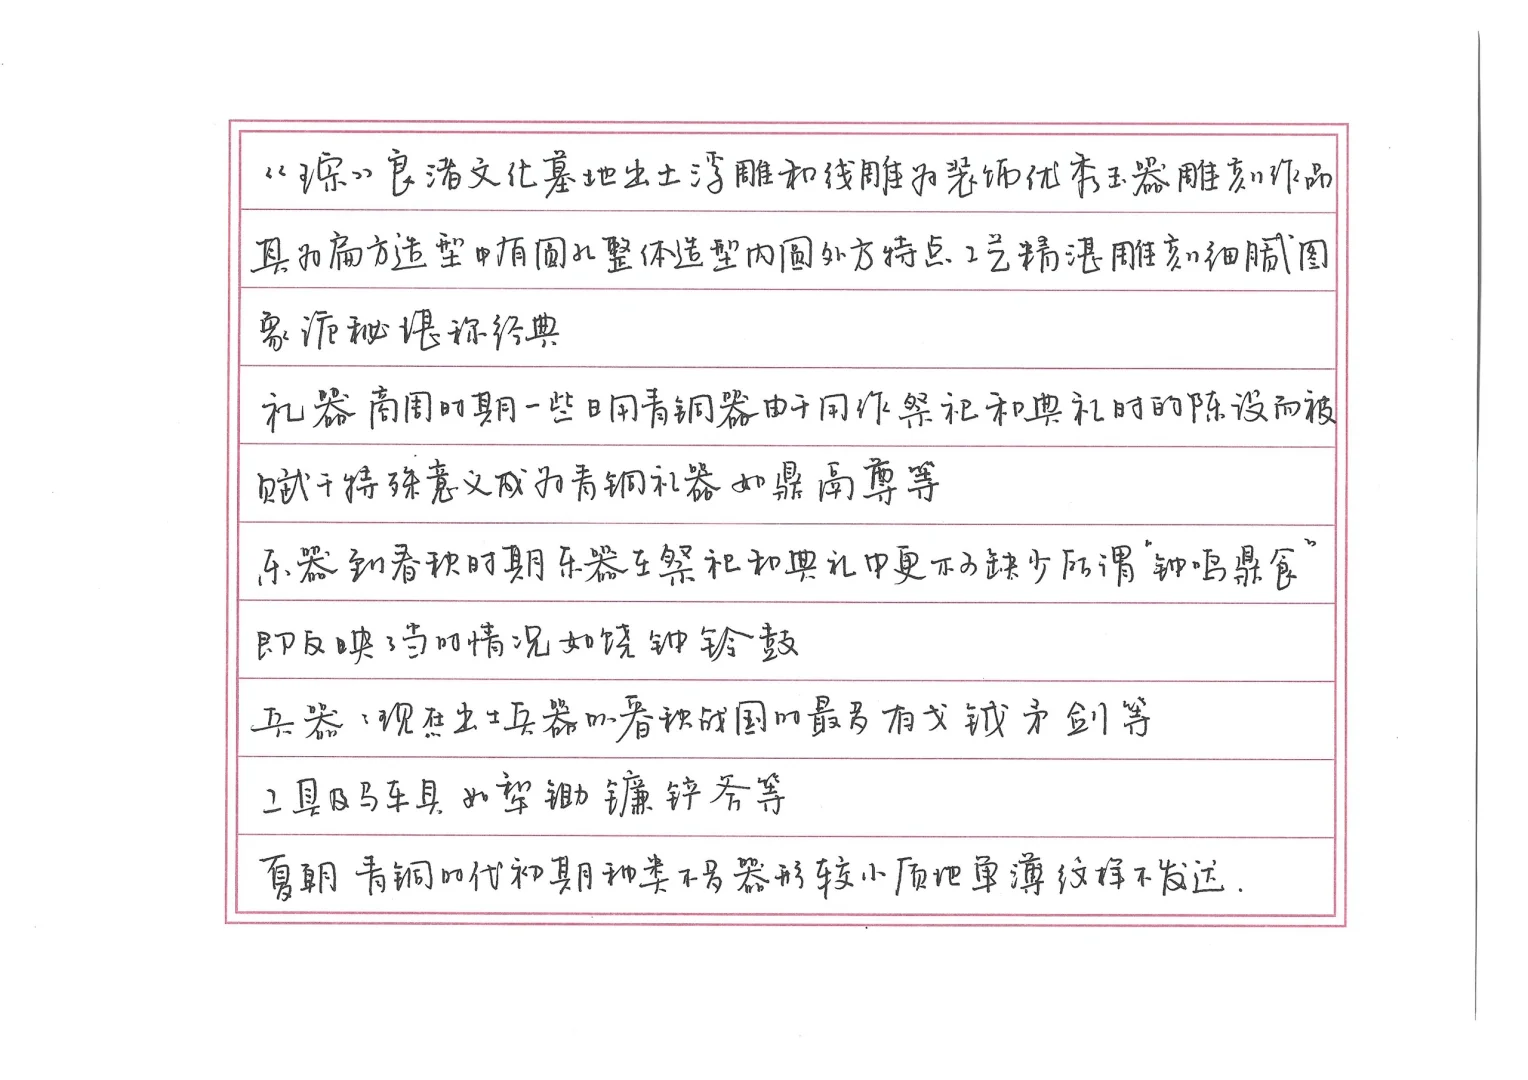 《琮》良渚文化墓地出土浮雕和线雕为装饰优秀玉器雕刻作品
具为扁方造型中有圆孔整体造型内圆外方特点工艺精湛雕刻细腻图
象诡秘堪称经典
礼器商周时期一些日用青铜器由于用作祭祀和典礼时的陈设而被
赋于特殊意义成为青铜礼器如鼎鬲尊等
乐器到春秋时期乐器在祭祀和典礼中更不可缺少所谓“钟鸣鼎食”
即反映了当时情况如铙钟铃鼓
兵器：现在出土兵器以春秋战国时最多有戈钺矛剑等
工具及马车具如犁锄镰锌斧等
夏朝青铜时代初期种类不多器形较小质地单薄纹样不发达.